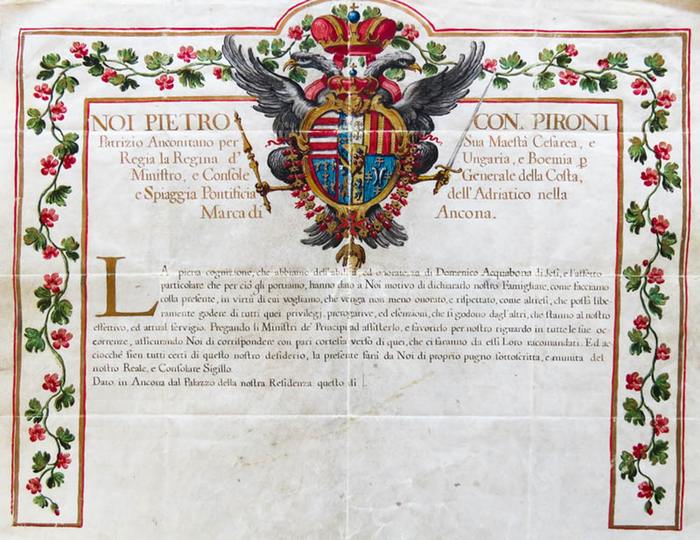 NOI PIETRO CON. PIRONI
Patrizio Anconitano per Sua Maestà Cesarea, e
Regia la Regina d' Ungaria, e Boemia p
Ministro, e Console Generale della Costa,
e Spiaggia Pontificia dell'Adriatico nella
Marca di Ancona.
LA piena cognizione, che abbiamo dell'abilità, ed onoratezza di Domenico Acquabona di Jesi, e l'affetto
particolare che per ciò gli portiamo, hanno dato a Noi motivo di dichiararlo nostro Famigliare, come facciamo
colla presente, in virtù di cui vogliamo, che venga non meno onorato, e rispettato, come altresì, che possa libe
ramente godere di tutti quei privilegj, prerogative, ed esenzioni, che si godono dagl'altri, che stanno al nostro
effettivo, ed attual servigio. Pregando li Ministri de' Principi ad assisterlo, e favorirlo per nostro riguardo in tutte le sue oc
correnze, assicurando Noi di corrispondere con pari cortesia verso di quei, che ci saranno da essi Loro racomandati. Ed ac
ciocchè sien tutti certi di questo nostro desiderio, la presente sarà da Noi di proprio pugno sottoscritta, e munita del
nostro Reale, e Consolare Sigillo.
Dato in Ancona dal Palazzo della nostra Residenza questo dì